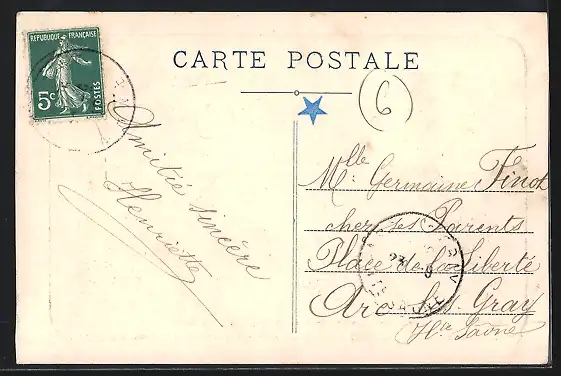 REPUBLIQUE FRANÇAISE
5c
POSTES
CARTE POSTALE
6
Amitié sincère
Henriette
Mlle Germaine Finot
chez ses Parents
Place de la Liberté
Arc Les Gray
Hte Saône